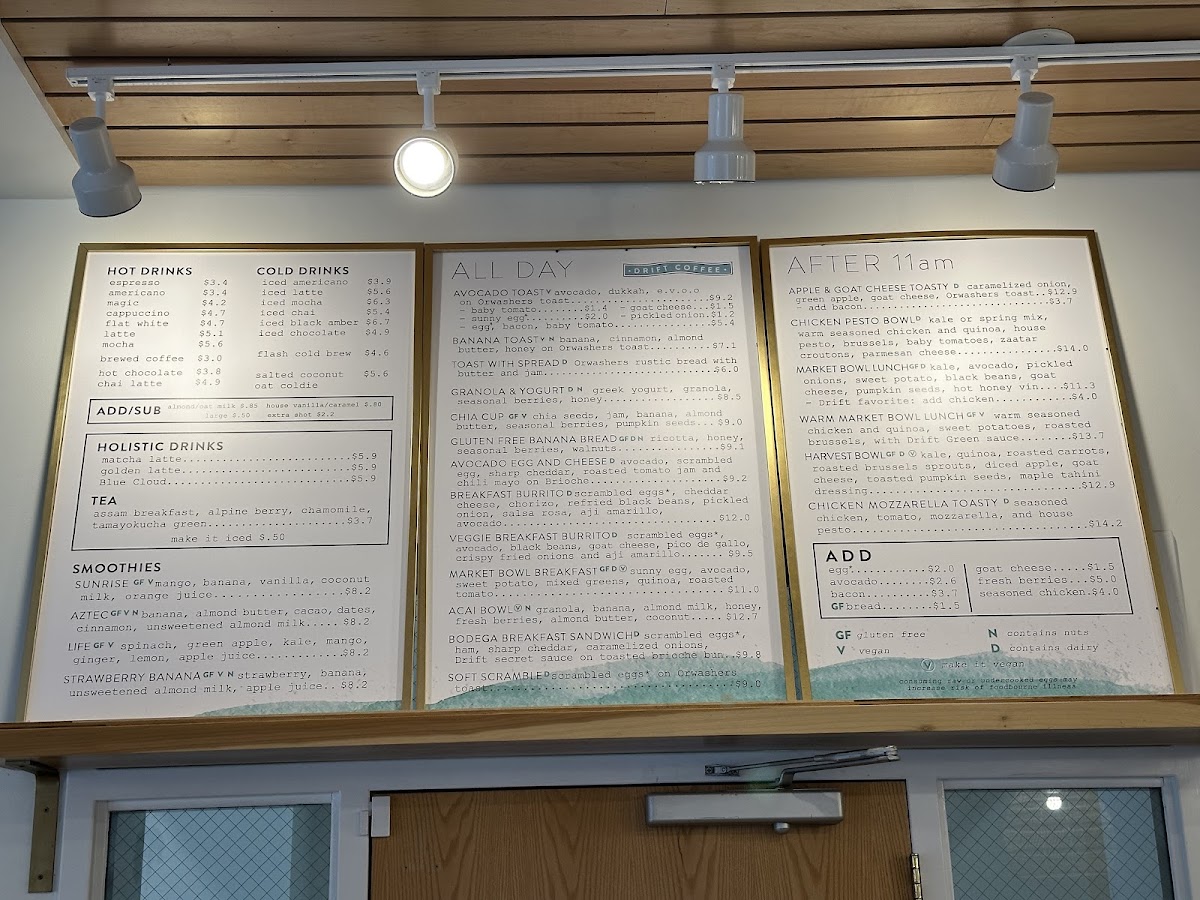 HOT DRINKS
espresso $3.4
americano $3.4
magic $4.2
cappuccino $4.7
flat white $4.7
latte $5.1
mocha $5.6
brewed coffee $3.0
hot chocolate $3.8
chai latte $4.9
COLD DRINKS
iced americano $3.9
iced latte $5.6
iced mocha $6.3
iced chai $5.4
iced black amber $6.7
iced chocolate $4.9
flash cold brew $4.6
salted coconut $5.6
oat coldie
ADD/SUB almond/oat milk $.85 house vanilla/caramel $.80
large $.50 extra shot $2.2
HOLISTIC DRINKS
matcha latte..........................$5.9
golden latte..........................$5.9
Blue Cloud............................$5.9
TEA
assam breakfast, alpine berry, chamomile,
tamayokucha green.....................$3.7
make it iced $.50
SMOOTHIES
SUNRISE GF V mango, banana, vanilla, coconut
milk, orange juice....................$8.2
AZTEC GF V N banana, almond butter, cacao, dates,
cinnamon, unsweetened almond milk..... $8.2
LIFE GF V spinach, green apple, kale, mango,
ginger, lemon, apple juice............$8.2
STRAWBERRY BANANA GF V N strawberry, banana,
unsweetened almond milk, apple juice.. $8.2
ALL DAY
DRIFT COFFEE
AVOCADO TOAST V avocado, dukkah, e.v.o.o
on Orwashers toast....................$9.2
- baby tomato.......$1.4 - goat cheese...$1.5
- sunny egg*........$2.0 - pickled onion.$1.2
- egg*, bacon, baby tomato..............$5.4
BANANA TOAST V N banana, cinnamon, almond
butter, honey on Orwashers toast........$7.1
TOAST WITH SPREAD D Orwashers rustic bread with
butter and jam..........................$6.0
GRANOLA & YOGURT D N greek yogurt, granola,
seasonal berries, honey.................$8.5
CHIA CUP GF V chia seeds, jam, banana, almond
butter, seasonal berries, pumpkin seeds... $9.0
GLUTEN FREE BANANA BREAD GF D N ricotta, honey,
seasonal berries, walnuts...............$9.1
AVOCADO EGG AND CHEESE D avocado, scrambled
egg, sharp cheddar, roasted tomato jam and
chili mayo on Brioche...................$9.2
BREAKFAST BURRITO D scrambled eggs*, cheddar
cheese, chorizo, refried black beans, pickled
onion, salsa rosa, aji amarillo,
avocado.................................$12.0
VEGGIE BREAKFAST BURRITO D scrambled eggs*,
avocado, black beans, goat cheese, pico de gallo,
crispy fried onions and aji amarillo....... $9.5
MARKET BOWL BREAKFAST GF D V sunny egg, avocado,
sweet potato, mixed greens, quinoa, roasted
tomato..................................$11.0
ACAI BOWL V N granola, banana, almond milk, honey,
fresh berries, almond butter, coconut..... $12.7
BODEGA BREAKFAST SANDWICH D scrambled eggs*,
ham, sharp cheddar, caramelized onions,
Drift secret sauce on toasted brioche bun..$9.8
SOFT SCRAMBLE D scrambled eggs* on Orwashers
toast...................................$9.0
AFTER 11am
APPLE & GOAT CHEESE TOASTY D caramelized onion,
green apple, goat cheese, Orwashers toast..$12.9
- add bacon.............................$3.7
CHICKEN PESTO BOWL D kale or spring mix,
warm seasoned chicken and quinoa, house
pesto, brussels, baby tomatoes, zaatar
croutons, parmesan cheese...............$14.0
MARKET BOWL LUNCH GF D kale, avocado, pickled
onions, sweet potato, black beans, goat
cheese, pumpkin seeds, hot honey vin....$11.3
- Drift favorite: add chicken...........$4.0
WARM MARKET BOWL LUNCH GF V warm seasoned
chicken and quinoa, sweet potatoes, roasted
brussels, with Drift Green sauce........$13.7
HARVEST BOWL GF D V kale, quinoa, roasted carrots,
roasted brussels sprouts, diced apple, goat
cheese, toasted pumpkin seeds, maple tahini
dressing................................$12.9
CHICKEN MOZZARELLA TOASTY D seasoned
chicken, tomato, mozzarella, and house
pesto...................................$14.2
ADD
egg*...........$2.0
avocado........$2.6
bacon..........$3.7
GF bread.......$1.5
goat cheese.....$1.5
fresh berries...$5.0
seasoned chicken.$4.0
GF gluten free N contains nuts
V vegan D contains dairy
V make it vegan
consuming raw or undercooked eggs may
increase risk of foodbourne illness